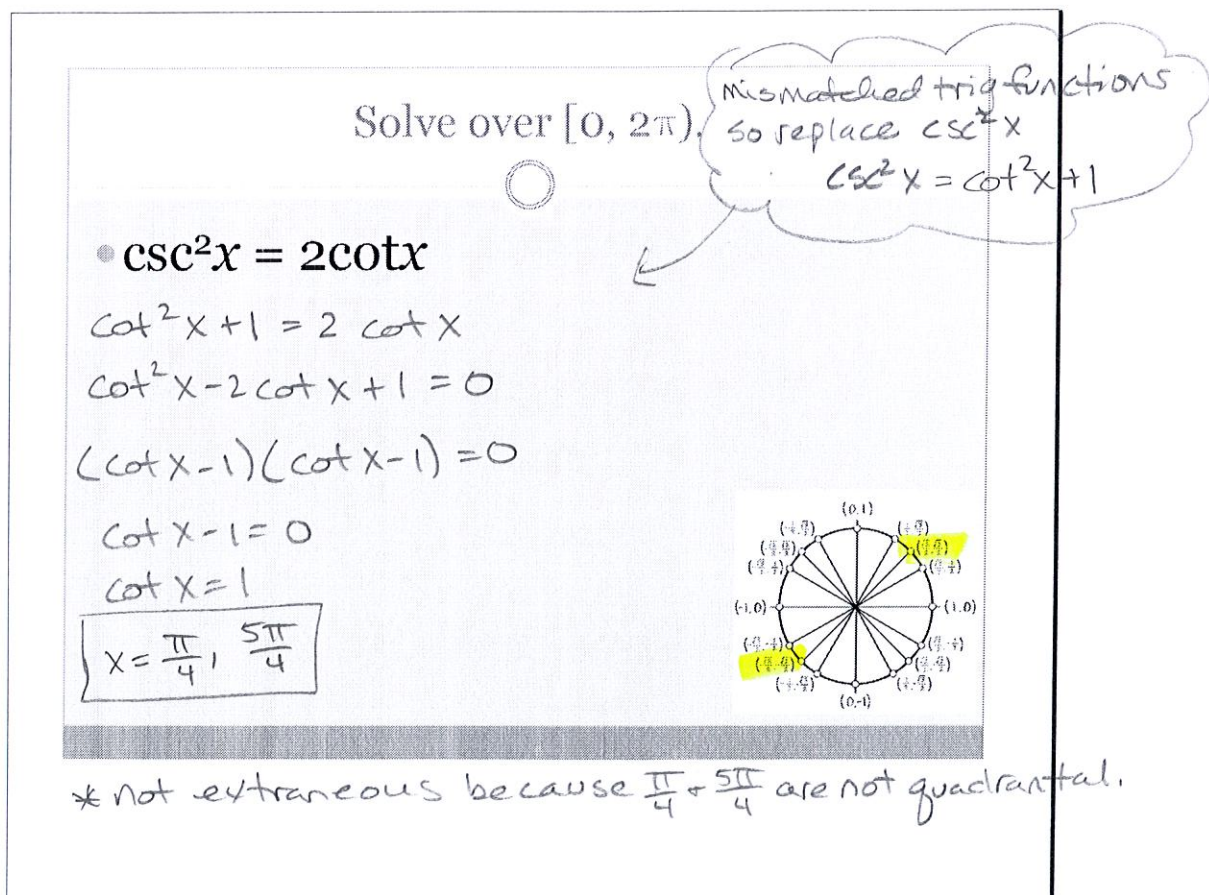 Solve over [0, 2π).
mismatched trig functions
so replace csc²x
csc²x = cot²x+1
csc²x = 2cotx
cot²x+1 = 2 cot x
cot²x-2 cot x + 1 = 0
(cot x-1)(cot x-1) = 0
cot x-1 = 0
cot x = 1
x = π/4, 5π/4
(0,1)
(-1,0)
(1,0)
(0,-1)
* not extraneous because π/4 + 5π/4 are not quadrantal.